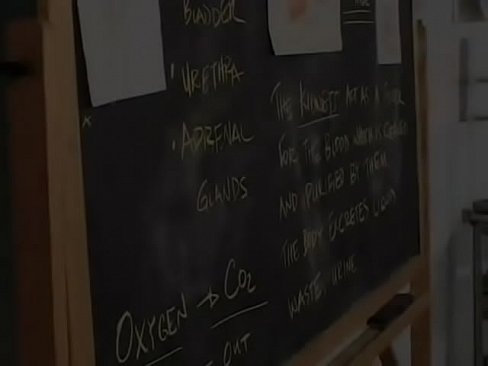 BLADDER
• URETHRA
• ADRENAL
GLANDS
OXYGEN → CO2
OUT
THE KIDNEYS ACT AS A FILTER
FOR THE BLOOD WHICH IS CLEANED
AND PURIFIED BY THEM
THE BODY EXCRETES LIQUID
WASTE, URINE